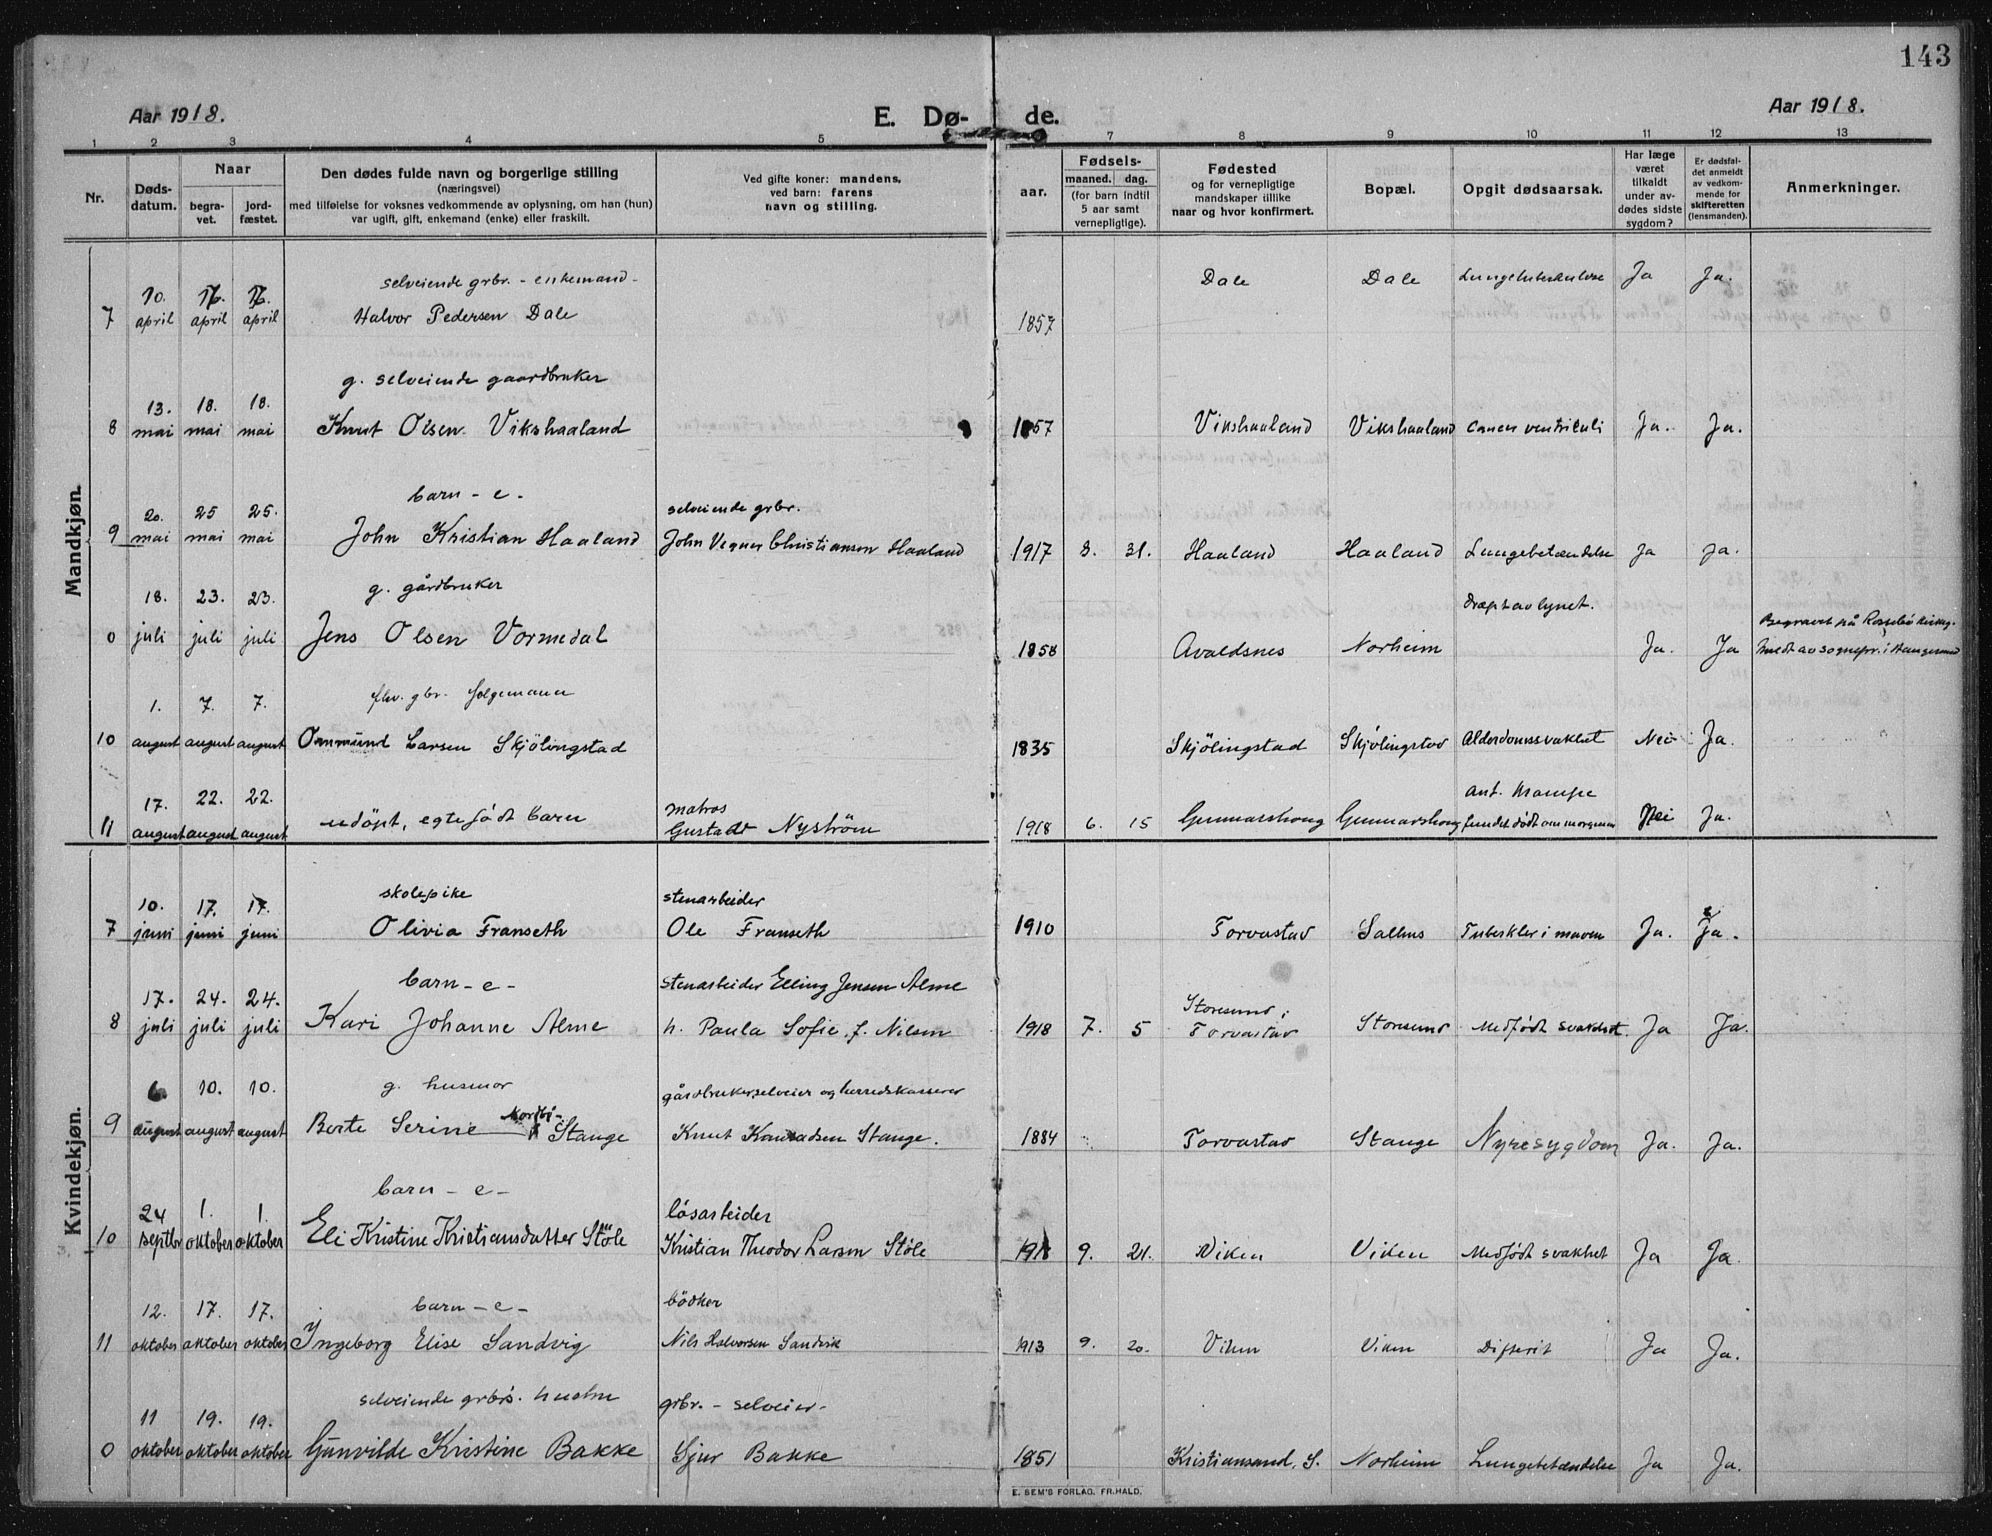 143
Aar 1918.
E. Dø-
de.
Aar 1918.
1 2 3 4 5 7 8 9 10 11 12 13
Nr.
Døds-
datum.
Naar
begra-
vet.
jord-
fæstet.
Den dødes fulde navn og borgerlige stilling
(næringsvei)
med tilføielse for voksnes vedkommende av oplysning, om han (hun)
var ugift, gift, enkemand (enke) eller fraskilt.
Ved gifte koner: mandens,
ved barn: farens
navn og stilling.
aar.
Fødsels-
maaned. dag.
(for barn indtil
5 aar samt
vernepligtige).
Fødested
og for vernepligtige
mandskaper tillike
naar og hvor konfirmert.
Bopæl.
Opgit dødsaarsak.
Har læge
været
tilkaldt
under av-
dødes sidste
sygdom?
Er dødsfal-
det anmeldt
av vedkom-
mende for
skifteretten
(lensmanden).
Anmerkninger.
Mandkjøn.
10. 16. 16. selveiende grbr. - enkemand - Dale Dale Lungetuberkulose Ja Ja.
7 april april april Halvor Pedersen Dale 1857
g. selveiende gaardbruker
13. 18. 18.
8 mai mai mai Knut Olsen Vikshaaland 1857 Vikshaaland Vikshaaland cancer ventriculi Ja. Ja.
barn - e -
20. 25 25. selveiende grbr.
9 mai mai mai John Kristian Haaland John Vegner Christiansen Haaland 1917 8. 31. Haaland Haaland Lungebetændelse Ja Ja.
g. gårdbruker
18. 23. 23. dræpt av lynet.
0 juli juli juli Jens Olsen Vormedal 1858 Avaldsnes Norheim Ja. Ja
Begravet på Rossebø kirkeg.
medt av sognepr. i Haugesund
fhv. gbr. følgemann
1. 7. 7.
10 august august august Ommund Larsen Skjölingstad 1835 Skjölingstad Skjölingstad Alderdomssvakhet Nei Ja.
17. 22. 22. matros Ant. krampe
11 august august august udöpt, egtefødt barn Gustav Nyström 1918 6. 15 Gunnarshaug Gunnarshaug fundet dødt om morgenen Nei Ja.
Kvindekjøn.
skolepike stenarbeider
10. 17. 17.
7 juni juni juni Olivia Franseth Ole Franseth 1910 Torvastad Salhus Tuberkler i maven Ja. Ja.
barn - e - stenarbeider Elling Jensen Alme
17. 24. 24. Storesund i
8 juli juli juli Kari Johanne Alme h. Paula Sofie f. Nilsen 1918 7. 5 Torvastad Storesund Medfødt svakhet. Ja Ja.
6 10. 10. g. husmor gårdbruker, selveier og herredskasserer
9 august august august Berte Serine Nordbø- Stange Knut Konradsen Stange. 1884 Torvastad Stange Nyresygdom Ja. Ja.
barn - e -
24 1. 1. løsarbeider
10 septbr oktober oktober Eli Kristine Kristiansdatter Støle Kristian Theodor Larsen Støle 1918 9. 21. Viken Viken Medfødt svakhet Ja Ja.
12. 17. 17. barn - e - bödker
11 oktober oktober oktober Ingeborg Elise Sandvig Nils Halvorsen Sandvik 1913 9. 20. Viken Viken Difterit Ja Ja.
selveiende grbr's. hustru grbr. - selveier -
11 19. 19.
0 oktober oktober oktober Gunvilde Kristine Bakke Sjur Bakke 1851 Kristiansand, S. Norheim Lungebetændelse Ja Ja.
E. SEM'S FORLAG. FR.HALD.